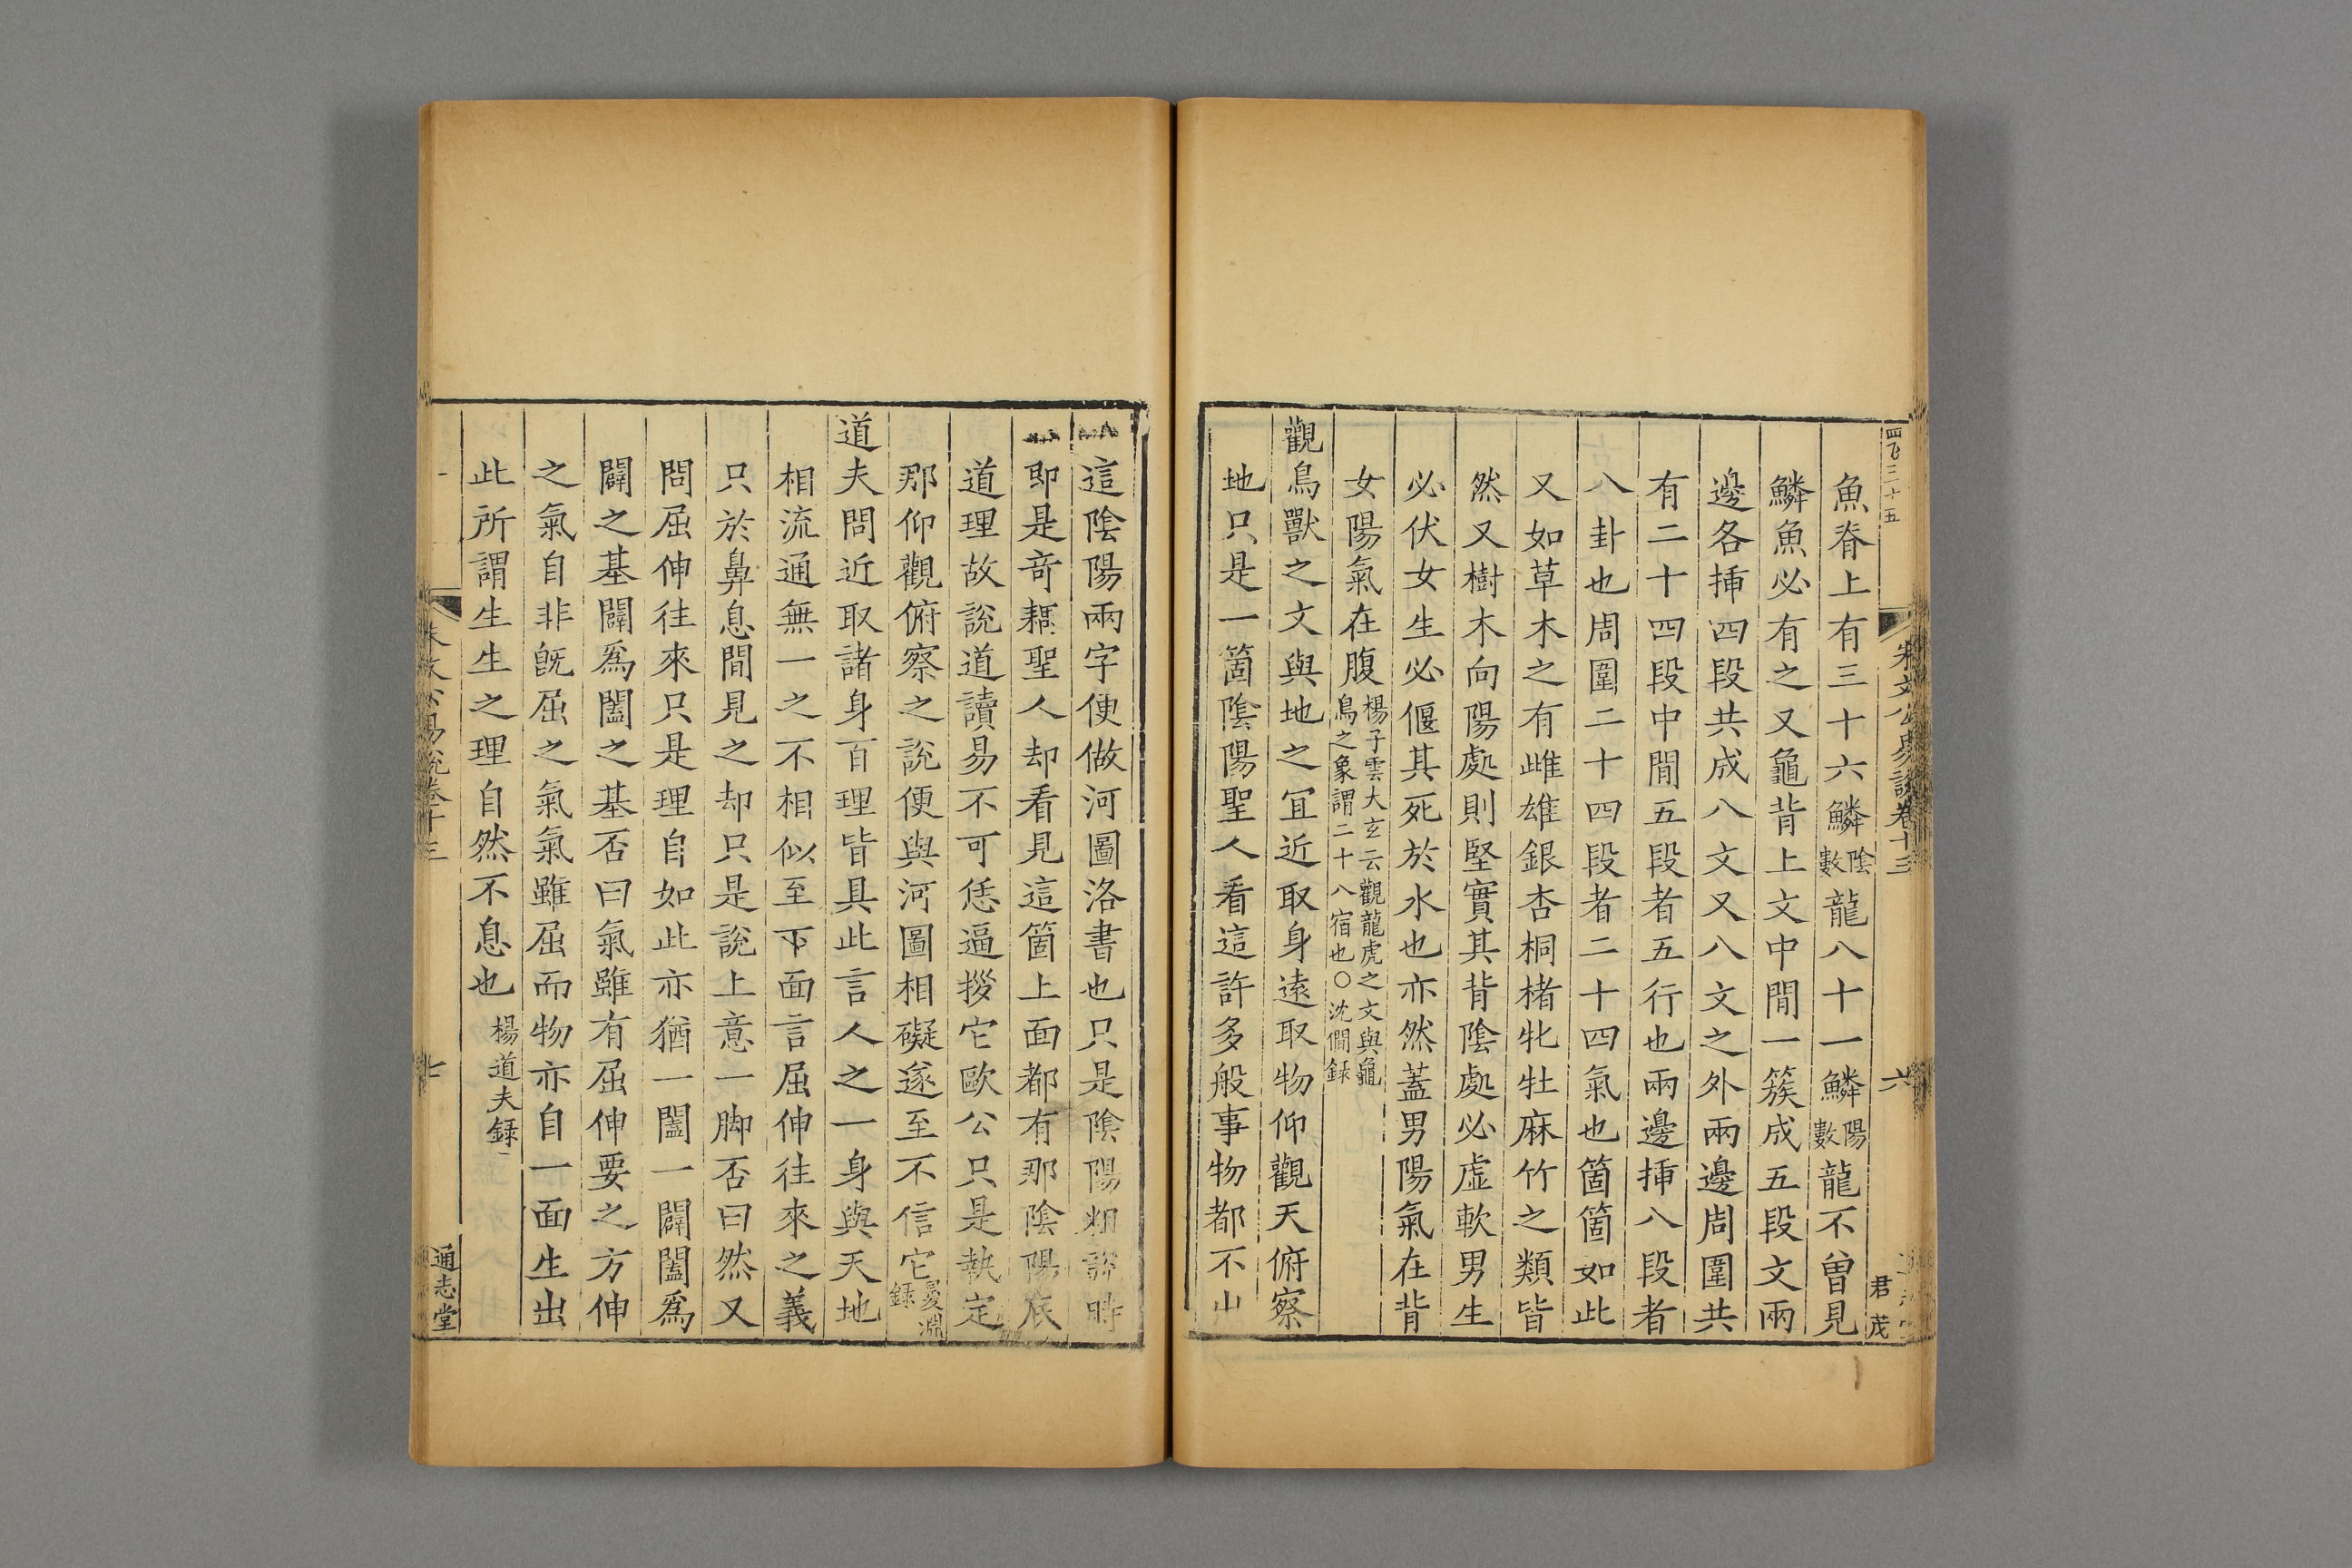 四飞三十五
朱文公易說卷十三
六
君茂
魚脊上有三十六鱗陰數龍八十一鱗陽數龍不曾見
鱗魚必有之又龜背上文中間一簇成五段文兩
邊各揷四段共成八文又八文之外兩邊周圍共
有二十四段中間五段者五行也兩邊揷八段者
八卦也周圍二十四段者二十四氣也箇箇如此
又如草木之有雌雄銀杏桐楮牝牡麻竹之類皆
然又樹木向陽處則堅實其背陰處必虛軟男生
必伏女生必偃其死於水也亦然蓋男陽氣在背
女陽氣在腹楊子雲大玄云觀龍虎之文與龜鳥之象謂二十八宿也○沈僩録
觀鳥獸之文與地之宜近取身遠取物仰觀天俯察
地只是一箇陰陽聖人看這許多般事物都不出
這陰陽兩字便做河圖洛書也只是陰陽粗說時
即是奇耦聖人却看見這箇上面都有那陰陽底
道理故說道讀易不可恁逼拶它歐公只是執定
那仰觀俯察之說便與河圖相礙遂至不信它㬊淵録
道夫問近取諸身百理皆具此言人之一身與天地
相流通無一之不相似至下面言屈伸往來之義
只於鼻息間見之却只是說上意一脚否曰然又
問屈伸往來只是理自如此亦猶一闔一闢闔爲
闢之基闢爲闔之基否曰氣雖有屈伸要之方伸
之氣自非旣屈之氣氣雖屈而物亦自一面生出
此所謂生生之理自然不息也楊道夫録
朱文公易說卷十三
七
通志堂